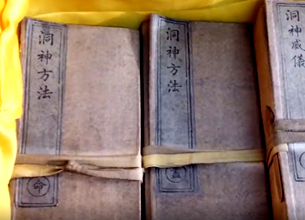 洞神方法
命
洞神方法
洞神威儀